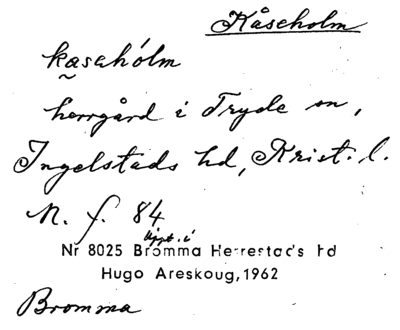 Kåseholm
kasehólm
herrgård i Tryde sn,
Ingelstads hd, Krist. l.
N. f. 84
uppt. i
Nr 8025 Bromma Herrestads hd
Hugo Areskoug, 1962
Bromma